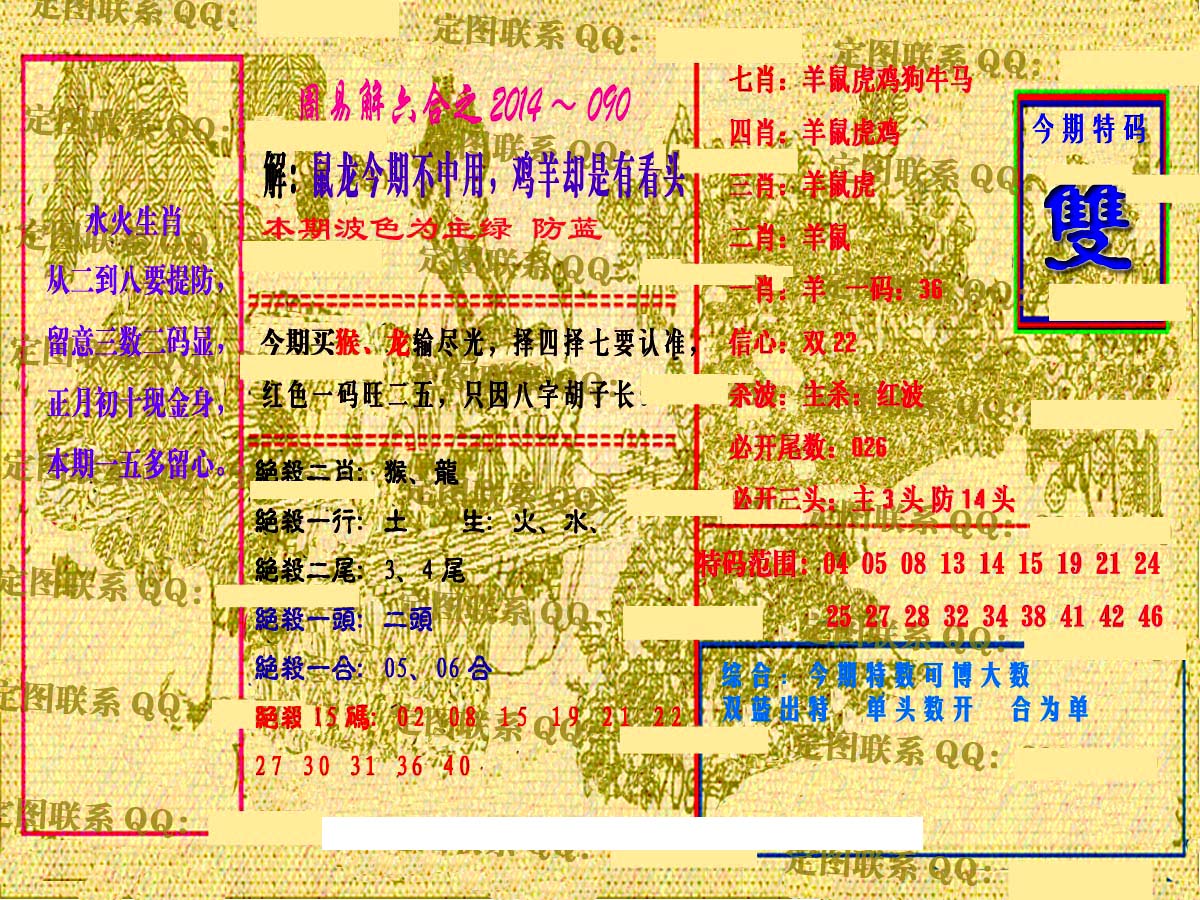 定图联系 QQ:
定图联系 QQ:
定图联系 QQ:
水火生肖
从二到八要提防，
留意三数二码显，
正月初十现金身，
本期一五多留心。
周易解六合之2014～090
解：鼠龙今期不中用，鸡羊却是有看头
本期波色为主绿 防蓝
今期买猴、龙输尽光，择四择七要认准，
红色一码旺二五，只因八字胡子长
絕殺二肖: 猴、龍
絕殺一行: 土 生: 火、水、
絕殺二尾: 3、4尾
絕殺一頭: 二頭
絕殺一合: 05、06合
絕殺15碼: 02 08 15 19 21 22
27 30 31 36 40
七肖：羊鼠虎鸡狗牛马
四肖：羊鼠虎鸡
三肖：羊鼠虎
二肖：羊鼠
一肖：羊 一码：36
信心：双22
杀波：主杀：红波
必开尾数：026
必开三头：主3头防14头
特码范围：04 05 08 13 14 15 19 21 24
25 27 28 32 34 38 41 42 46
今期特码
雙
综合：今期特数可博大数
双蓝出特 单头数开 合为单
定图联系 QQ:
定图联系 QQ:
定图联系 QQ:
定图联系 QQ:
定图联系 QQ: